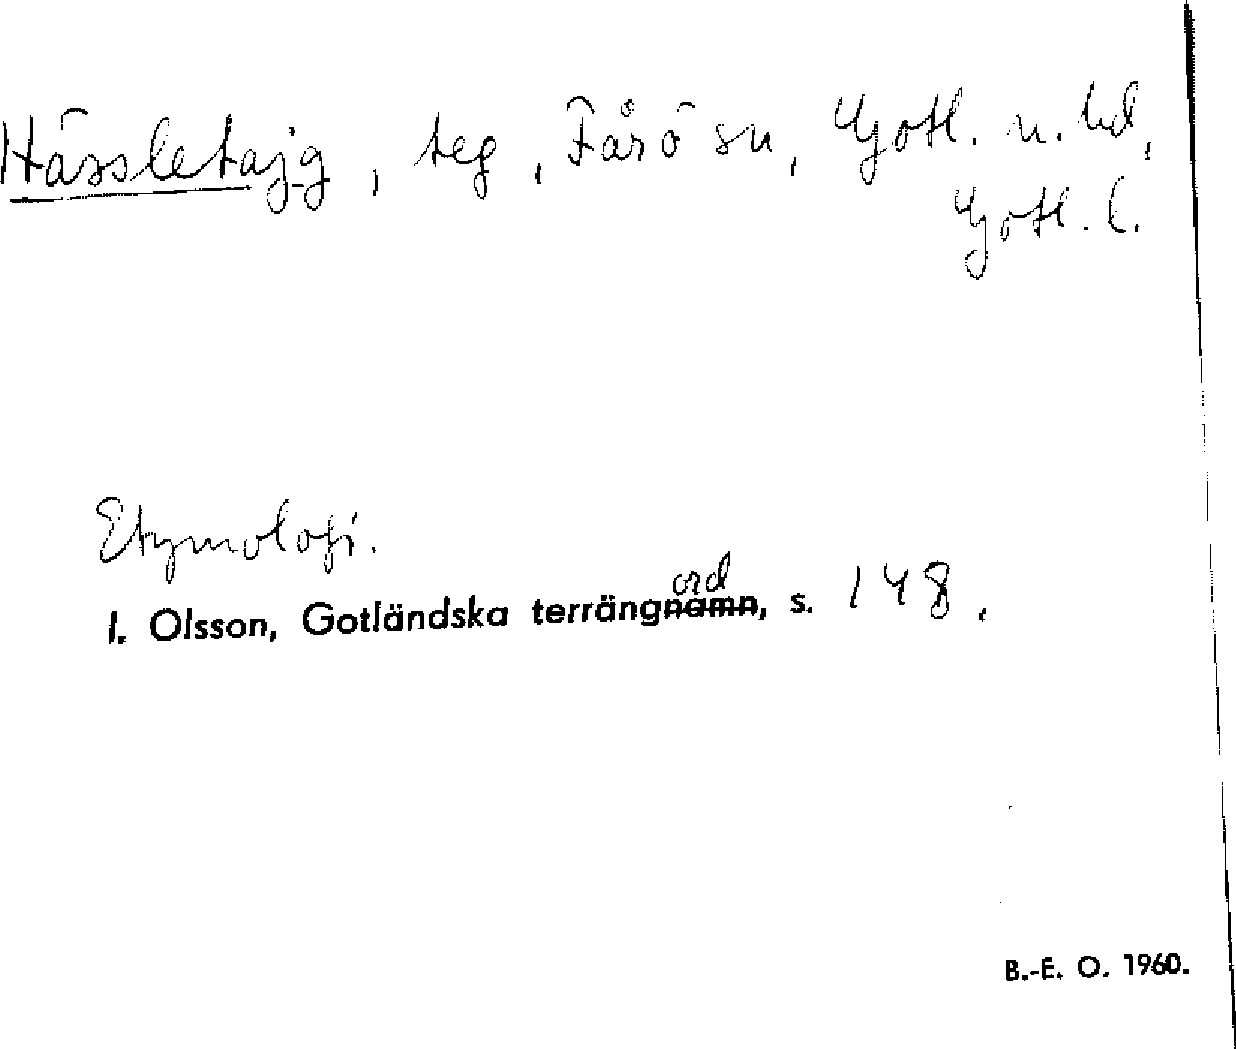 Hässletajg, teg, Fårö sn, Gotl. n. hd,
Gotl. l.
Etymologi.
I. Olsson, Gotländska terrängord, s. 148.
B.-E. O. 1960.